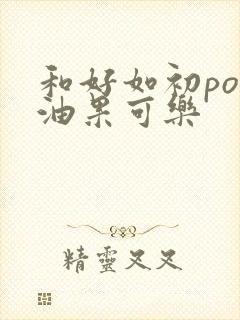 和好如初po
油果可樂
精靈叉叉